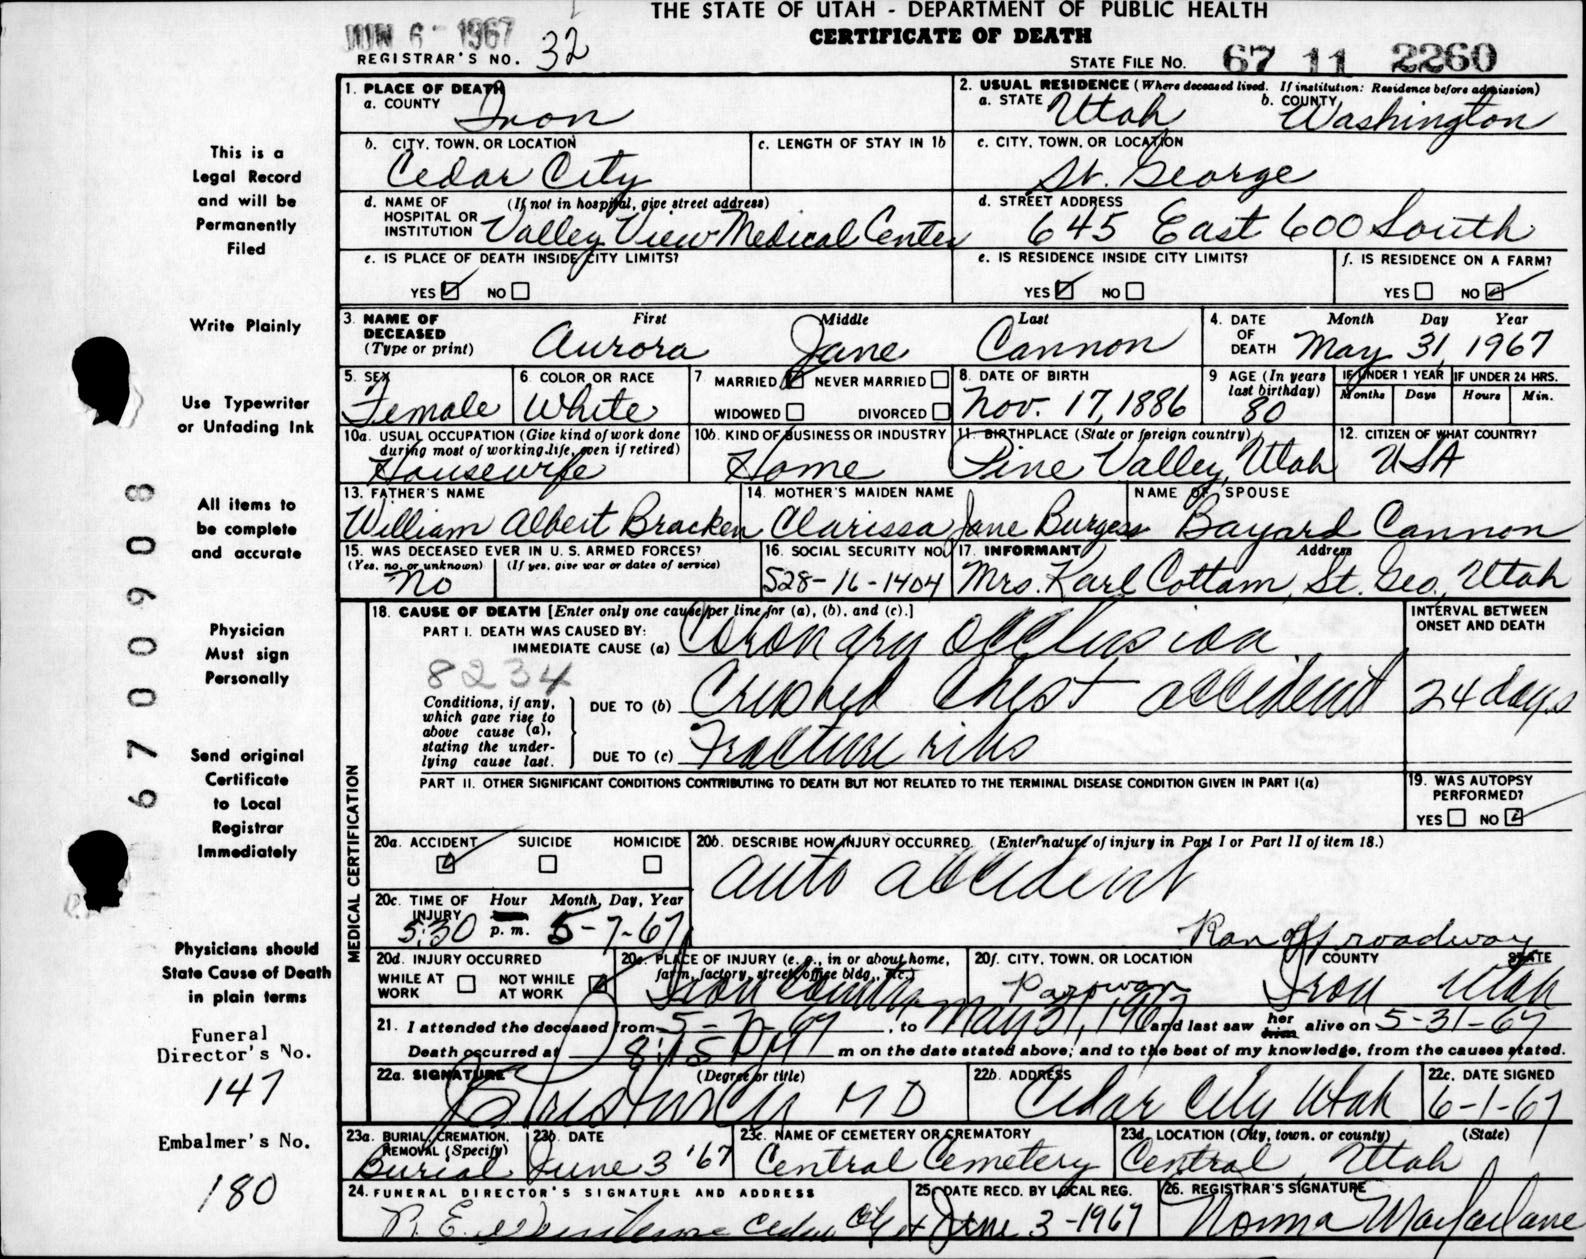 THE STATE OF UTAH - DEPARTMENT OF PUBLIC HEALTH
CERTIFICATE OF DEATH
JUN 6 - 1967
REGISTRAR'S NO. 32
STATE FILE NO. 67 11 2260
This is a
Legal Record
and will be
Permanently
Filed
Write Plainly
Use Typewriter
or Unfading Ink
All items to
be complete
and accurate
Physician
Must sign
Personally
Send original
Certificate
to Local
Registrar
Immediately
Physicians should
State Cause of Death
in plain terms
Funeral
Director's No.
147
Embalmer's No.
180
6700908
1. PLACE OF DEATH
a. COUNTY Iron
2. USUAL RESIDENCE (Where deceased lived. If institution: Residence before admission)
a. STATE Utah b. COUNTY Washington
b. CITY, TOWN, OR LOCATION Cedar City
c. LENGTH OF STAY IN 1b
c. CITY, TOWN, OR LOCATION St. George
d. NAME OF HOSPITAL OR INSTITUTION (If not in hospital, give street address) Valley View Medical Center
d. STREET ADDRESS 645 East 600 South
e. IS PLACE OF DEATH INSIDE CITY LIMITS? YES NO
e. IS RESIDENCE INSIDE CITY LIMITS? YES NO
f. IS RESIDENCE ON A FARM? YES NO
3. NAME OF DECEASED (Type or print) First Middle Last
Aurora Jane Cannon
4. DATE OF DEATH Month Day Year
May 31, 1967
5. SEX Female
6. COLOR OR RACE White
7. MARRIED NEVER MARRIED WIDOWED DIVORCED
8. DATE OF BIRTH Nov. 17, 1886
9 AGE (In years last birthday) 80
IF UNDER 1 YEAR Months Days
IF UNDER 24 HRS. Hours Min.
10a. USUAL OCCUPATION (Give kind of work done during most of working life, even if retired) Housewife
10b. KIND OF BUSINESS OR INDUSTRY Home
11. BIRTHPLACE (State or foreign country) Pine Valley, Utah
12. CITIZEN OF WHAT COUNTRY? USA
13. FATHER'S NAME William Albert Bracken
14. MOTHER'S MAIDEN NAME Clarissa Jane Burgess
NAME OF SPOUSE Bayard Cannon
15. WAS DECEASED EVER IN U. S. ARMED FORCES? (Yes, no, or unknown) (If yes, give war or dates of service) No
16. SOCIAL SECURITY NO. 528-16-1404
17. INFORMANT Address Mrs. Karl Cottam, St. Geo., Utah
18. CAUSE OF DEATH [Enter only one cause per line for (a), (b), and (c).]
INTERVAL BETWEEN ONSET AND DEATH
PART I. DEATH WAS CAUSED BY:
IMMEDIATE CAUSE (a) Coronary occlusion
8234
Conditions, if any, which gave rise to above cause (a), stating the underlying cause last.
DUE TO (b) Crushed Chest accident 24 days
DUE TO (c) Fracture ribs
PART II. OTHER SIGNIFICANT CONDITIONS CONTRIBUTING TO DEATH BUT NOT RELATED TO THE TERMINAL DISEASE CONDITION GIVEN IN PART I(a)
19. WAS AUTOPSY PERFORMED? YES NO
MEDICAL CERTIFICATION
20a. ACCIDENT SUICIDE HOMICIDE
20b. DESCRIBE HOW INJURY OCCURRED. (Enter nature of injury in Part I or Part II of item 18.)
auto accident
Ran off roadway
20c. TIME OF INJURY Hour Month, Day, Year
5:30 p. m. 5-7-67
20d. INJURY OCCURRED
WHILE AT WORK NOT WHILE AT WORK
20e. PLACE OF INJURY (e. g., in or about home, farm, factory, street, office bldg., etc.) Iron County
20f. CITY, TOWN, OR LOCATION COUNTY STATE
Parowan Iron Utah
21. I attended the deceased from 5-7-67, to May 31, 1967 and last saw her him alive on 5-31-67
Death occurred at 8:15 PM m on the date stated above; and to the best of my knowledge, from the causes stated.
22a. SIGNATURE (Degree or title) MD
22b. ADDRESS Cedar City Utah
22c. DATE SIGNED 6-1-67
23a. BURIAL, CREMATION, REMOVAL (Specify) Burial
23b. DATE June 3 '67
23c. NAME OF CEMETERY OR CREMATORY Central Cemetery
23d. LOCATION (City, town, or county) (State) Central, Utah
24. FUNERAL DIRECTOR'S SIGNATURE AND ADDRESS
R. E. Cedar City
25. DATE RECD. BY LOCAL REG. June 3 - 1967
26. REGISTRAR'S SIGNATURE Norma Macfarlane